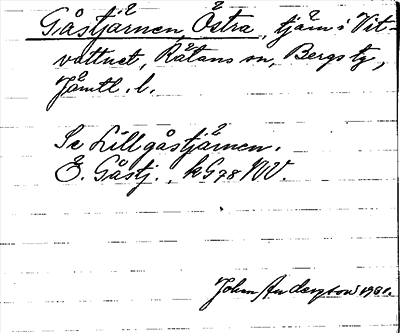 Gåstjärnen, Östra, tjärn i Vit-
vattnet, Råtans sn, Bergs tg,
Jämtl. l.
Se Lillgåstjärnen.
Ö. Gåstj., kG98 NV.
John Andersson 1931.